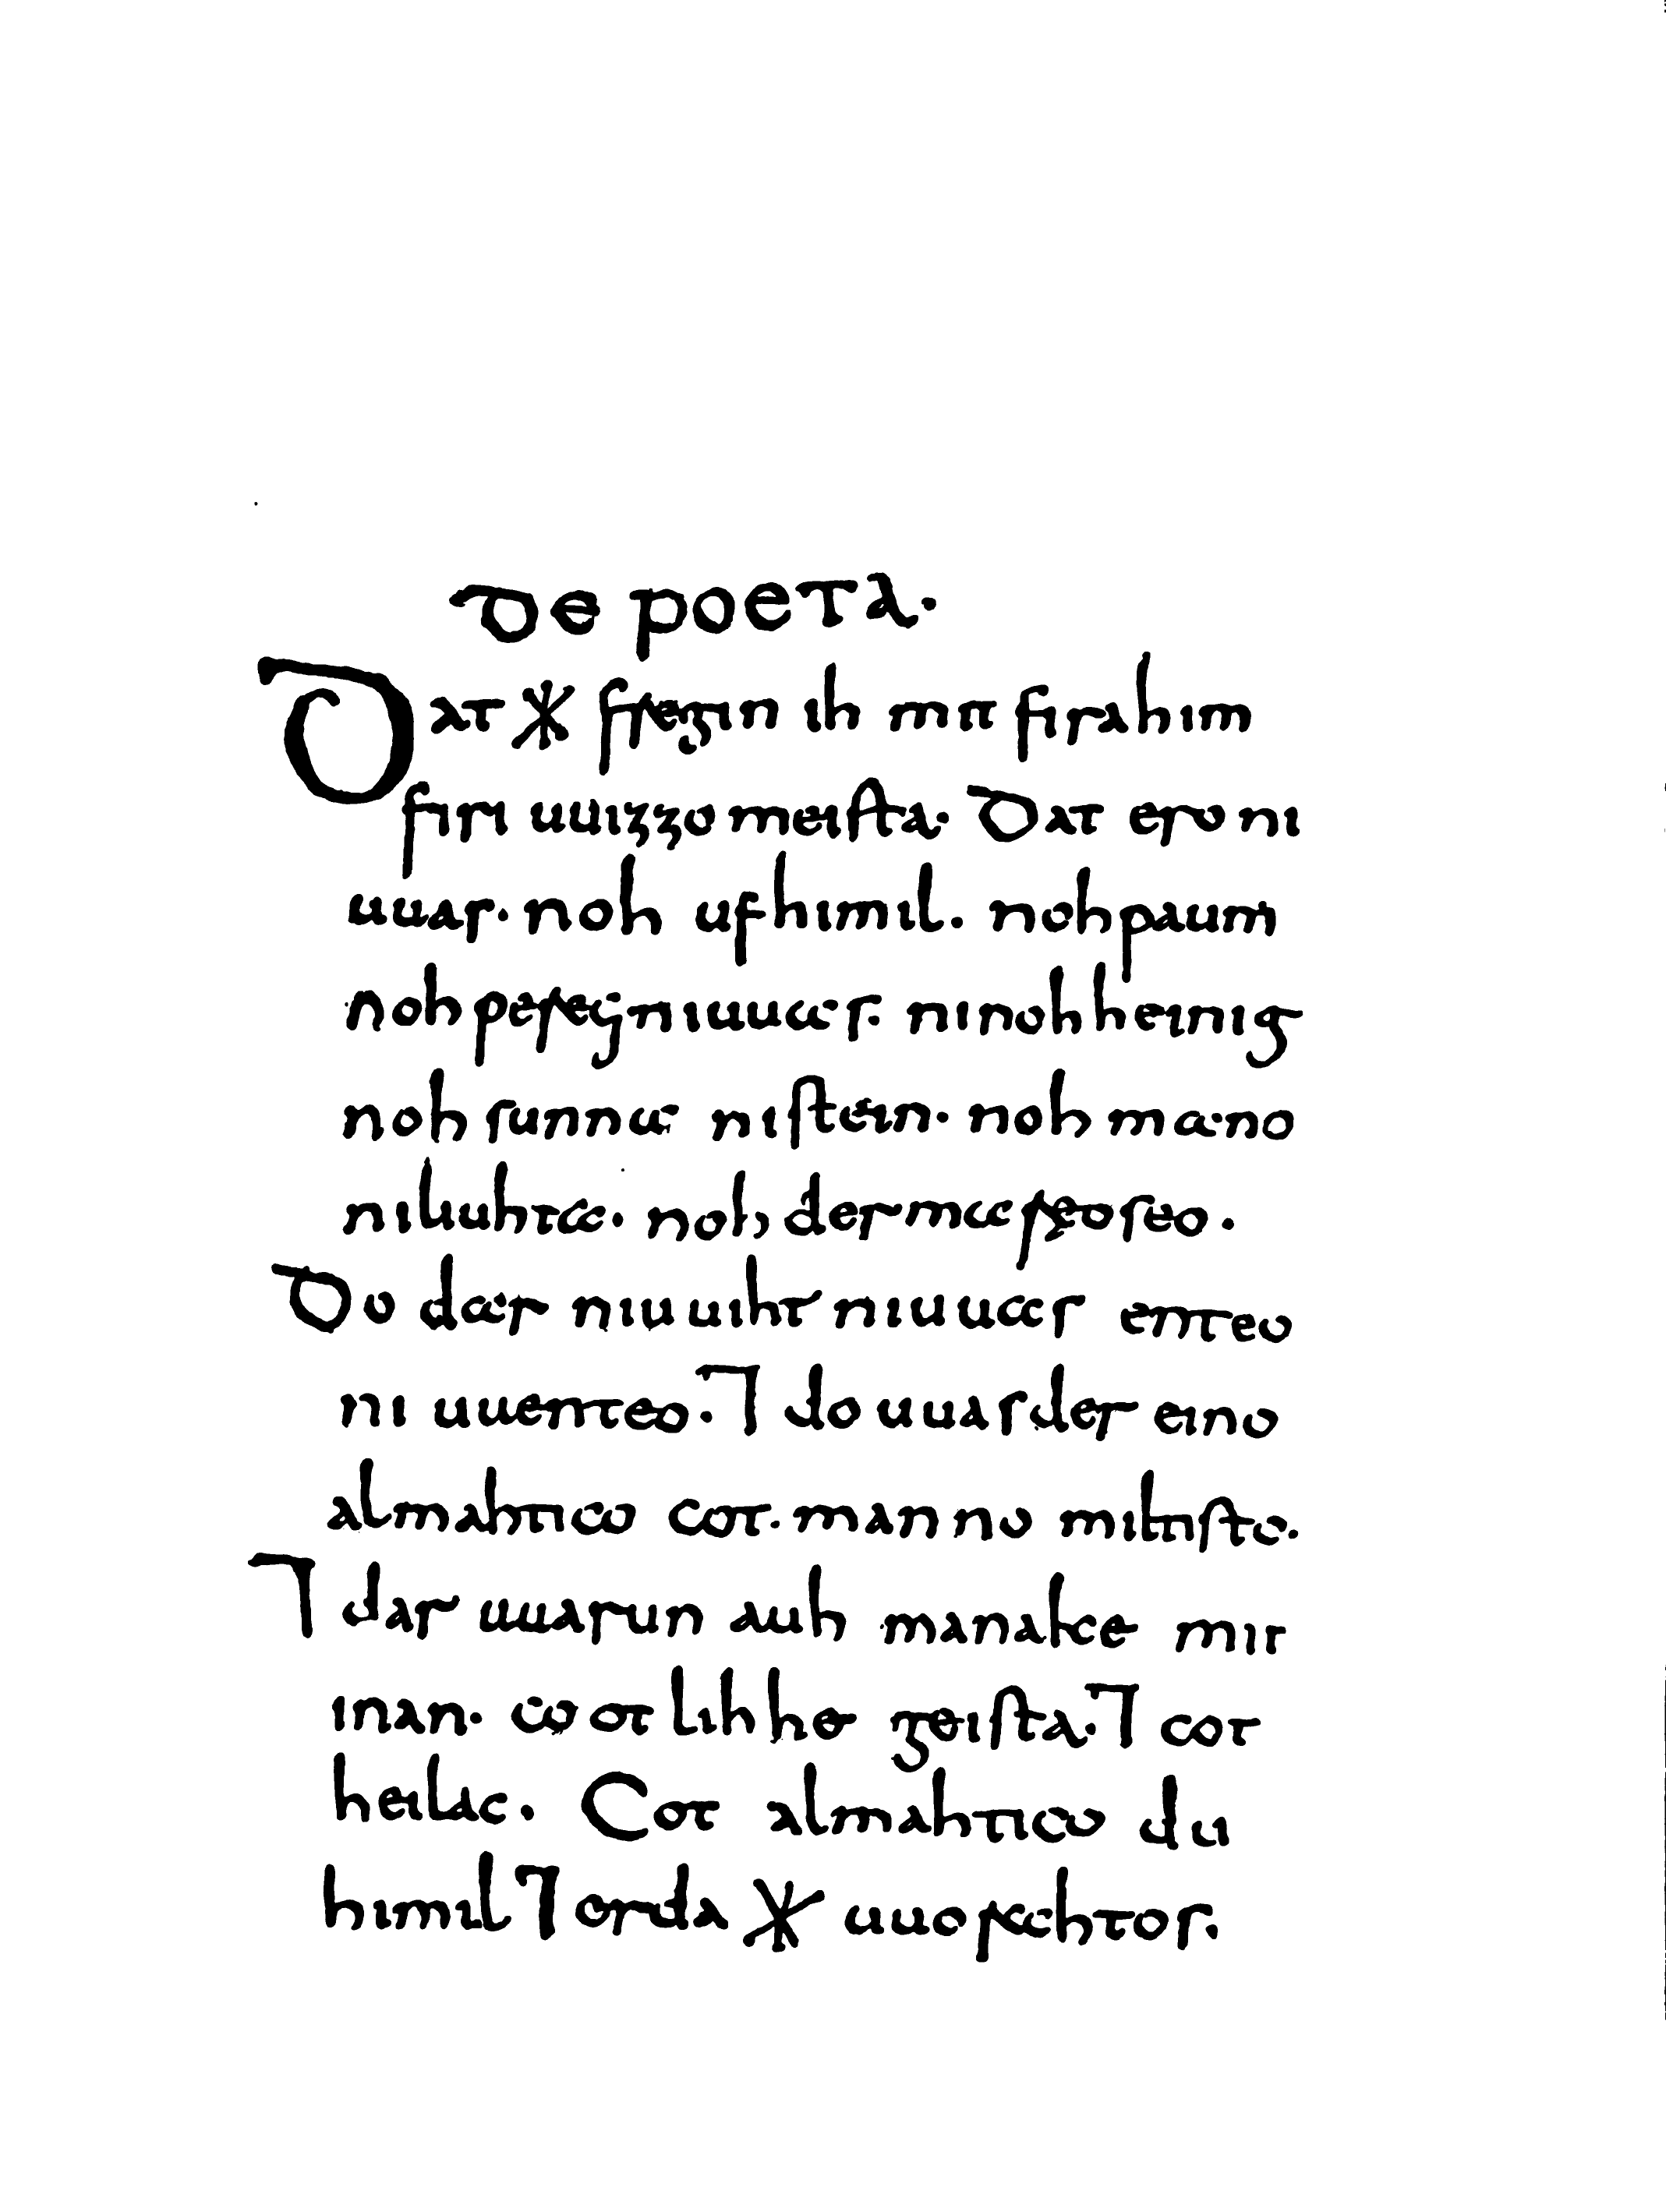 De poeta.
Dat ᚸ fregin ih mit firahim
firi uuizzo meista. Dat ero ni
uuas. noh ufhimil. noh paum
noh pereg ni uuas. ninoh heinig
noh sunna ni stein. noh mano
ni liuhta. noh der mareo seo.
Do dar niuuiht ni uuas enteo
ni uuenteo. ⁊ do uuas der eino
almahtico cot. manno miltisto.
⁊ dar uuarun auh manake mit
inan. cootlihhe geista. ⁊ cot
heilac. Cot almahtico du
himil ⁊ erda ᚸ uuorahtos.